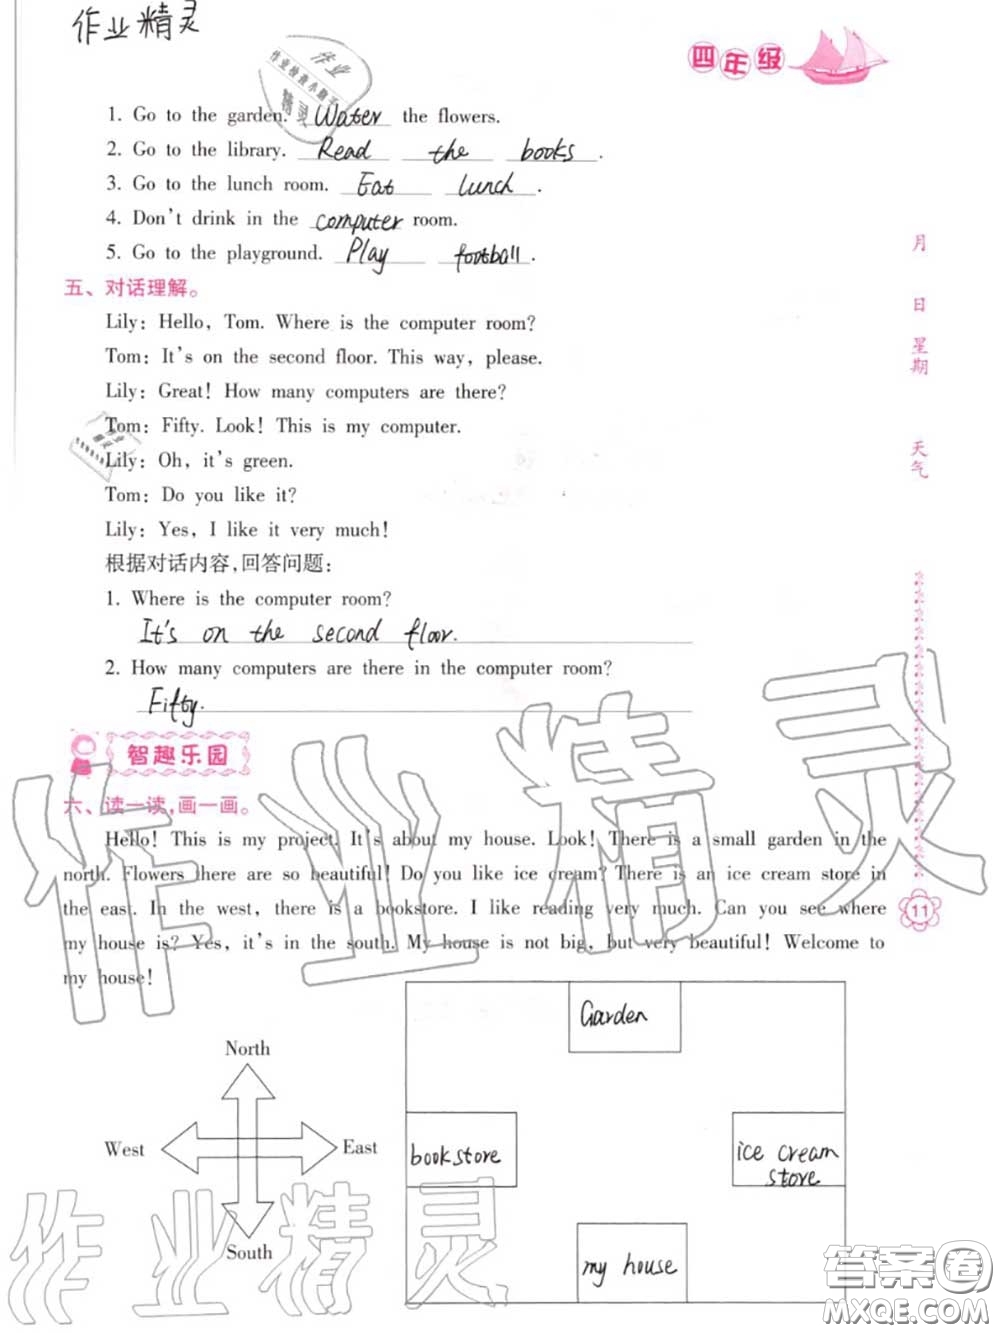 作业精灵
作业
作业检查小助手
精灵
四年级
1. Go to the garden. Water the flowers.
2. Go to the library. Read the books.
3. Go to the lunch room. Eat lunch.
4. Don't drink in the computer room.
5. Go to the playground. Play football.
五、对话理解。
Lily: Hello, Tom. Where is the computer room?
Tom: It's on the second floor. This way, please.
Lily: Great! How many computers are there?
Tom: Fifty. Look! This is my computer.
Lily: Oh, it's green.
Tom: Do you like it?
Lily: Yes, I like it very much!
根据对话内容,回答问题:
1. Where is the computer room?
It's on the second floor.
2. How many computers are there in the computer room?
Fifty.
智趣乐园
六、读一读,画一画。
Hello! This is my project. It's about my house. Look! There is a small garden in the
north. Flowers there are so beautiful! Do you like ice cream? There is an ice cream store in
the east. In the west, there is a bookstore. I like reading very much. Can you see where
my house is? Yes, it's in the south. My house is not big, but very beautiful! Welcome to
my house!
North
West
East
South
Garden
bookstore
ice cream
store
my house
月
日
星期
天气
11
作业精灵
作业精灵
答案圈
MXQE.COM